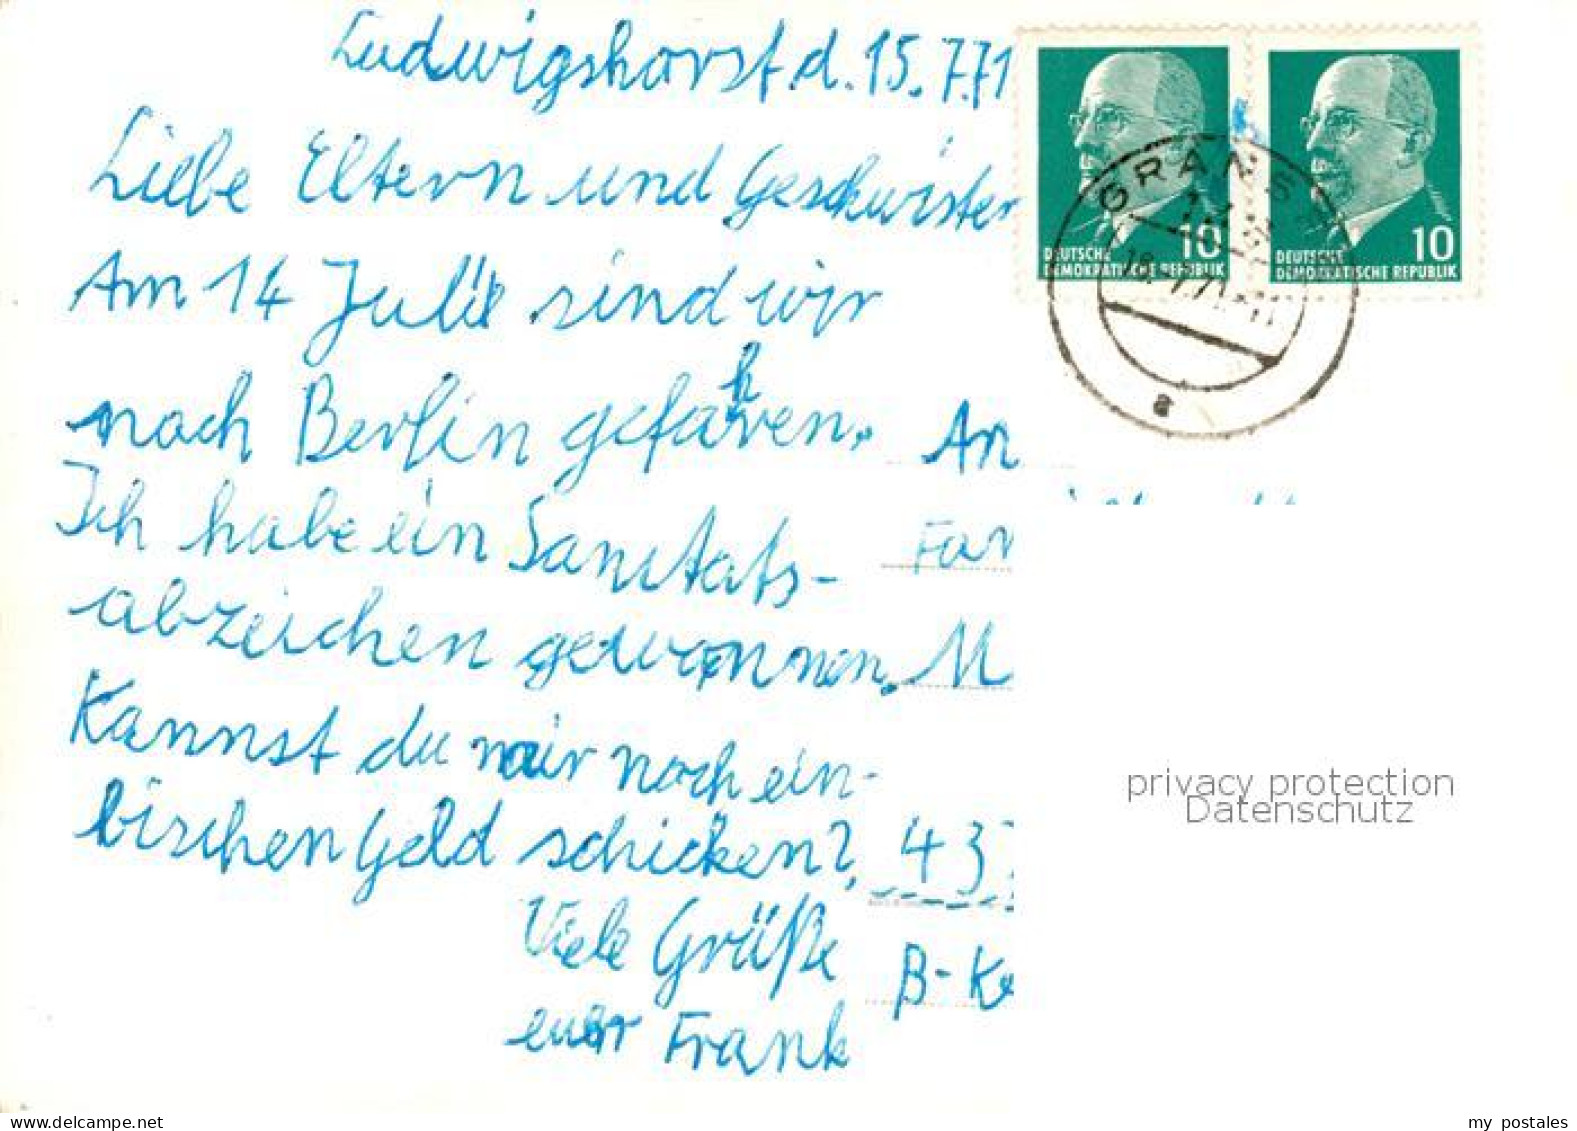 Ludwigshorst d. 15.7.71
Liebe Eltern und Geschwister
Am 14 Julie sind wir
nach Berlin gefahren.
Ich habe ein Sanitats-
abzeichen gewonnen.
Kannst du mir noch ein-
bischen Geld schicken?
Viele Grüße
euer Frank
DEUTSCHE
DEMOKRATISCHE REPUBLIK
10
DEUTSCHE
DEMOKRATISCHE REPUBLIK
10
GRANS
a
An
Fam
M
437
B-Ke
privacy protection
Datenschutz
my postales